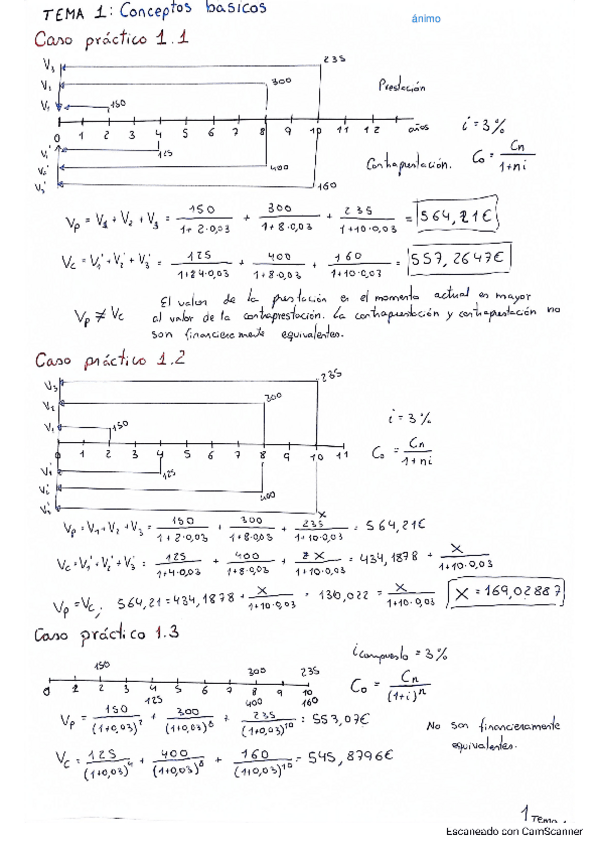 TEMA 1: Conceptos basicos
ánimo
Caso práctico 1.1
V₃ 235
V₂ 300
V₁ 150
Prestación
0 1 2 3 4 5 6 7 8 9 10 11 12 años
i = 3%
V₁' 125
V₂' 400
V₃' 160
Contraprestación. C₀ = Cn / 1+ni
Vp = V₁ + V₂ + V₃ = 150 / 1+2·0,03 + 300 / 1+8·0,03 + 235 / 1+10·0,03 = 564,21€
Vc = V₁' + V₂' + V₃' = 125 / 1+4·0,03 + 400 / 1+8·0,03 + 160 / 1+10·0,03 = 557,2647€
Vp ≠ Vc
El valor de la prestación en el momento actual es mayor
al valor de la contraprestación. La contraprestación y contraprestación no
son financieramente equivalentes.
Caso práctico 1.2
V₃ 235
V₂ 300
V₁ 150
i = 3%
1 2 3 4 5 6 7 8 9 10 11
C₀ = Cn / 1+ni
125
400
X
Vp = V₁ + V₂ + V₃ = 150 / 1+2·0,03 + 300 / 1+8·0,03 + 235 / 1+10·0,03 = 564,21€
Vc = V₁' + V₂' + V₃' = 125 / 1+4·0,03 + 400 / 1+8·0,03 + X / 1+10·0,03 = 434,1878 + X / 1+10·0,03
Vp = Vc; 564,21 = 434,1878 + X / 1+10·0,03 = 130,022 = X / 1+10·0,03 X = 169,02887
Caso práctico 1.3
i compuesto = 3%
150 300 235
0 1 2 3 4 5 6 7 8 9 10
125 400 160
C₀ = Cn / (1+i)ⁿ
Vp = 150 / (1+0,03)² + 300 / (1+0,03)⁸ + 235 / (1+0,03)¹⁰ = 553,07€
No son financieramente
equivalentes.
Vc = 125 / (1+0,03)⁴ + 400 / (1+0,03)⁸ + 160 / (1+0,03)¹⁰ = 545,8796€
1 Tema 1
Escaneado con CamScanner